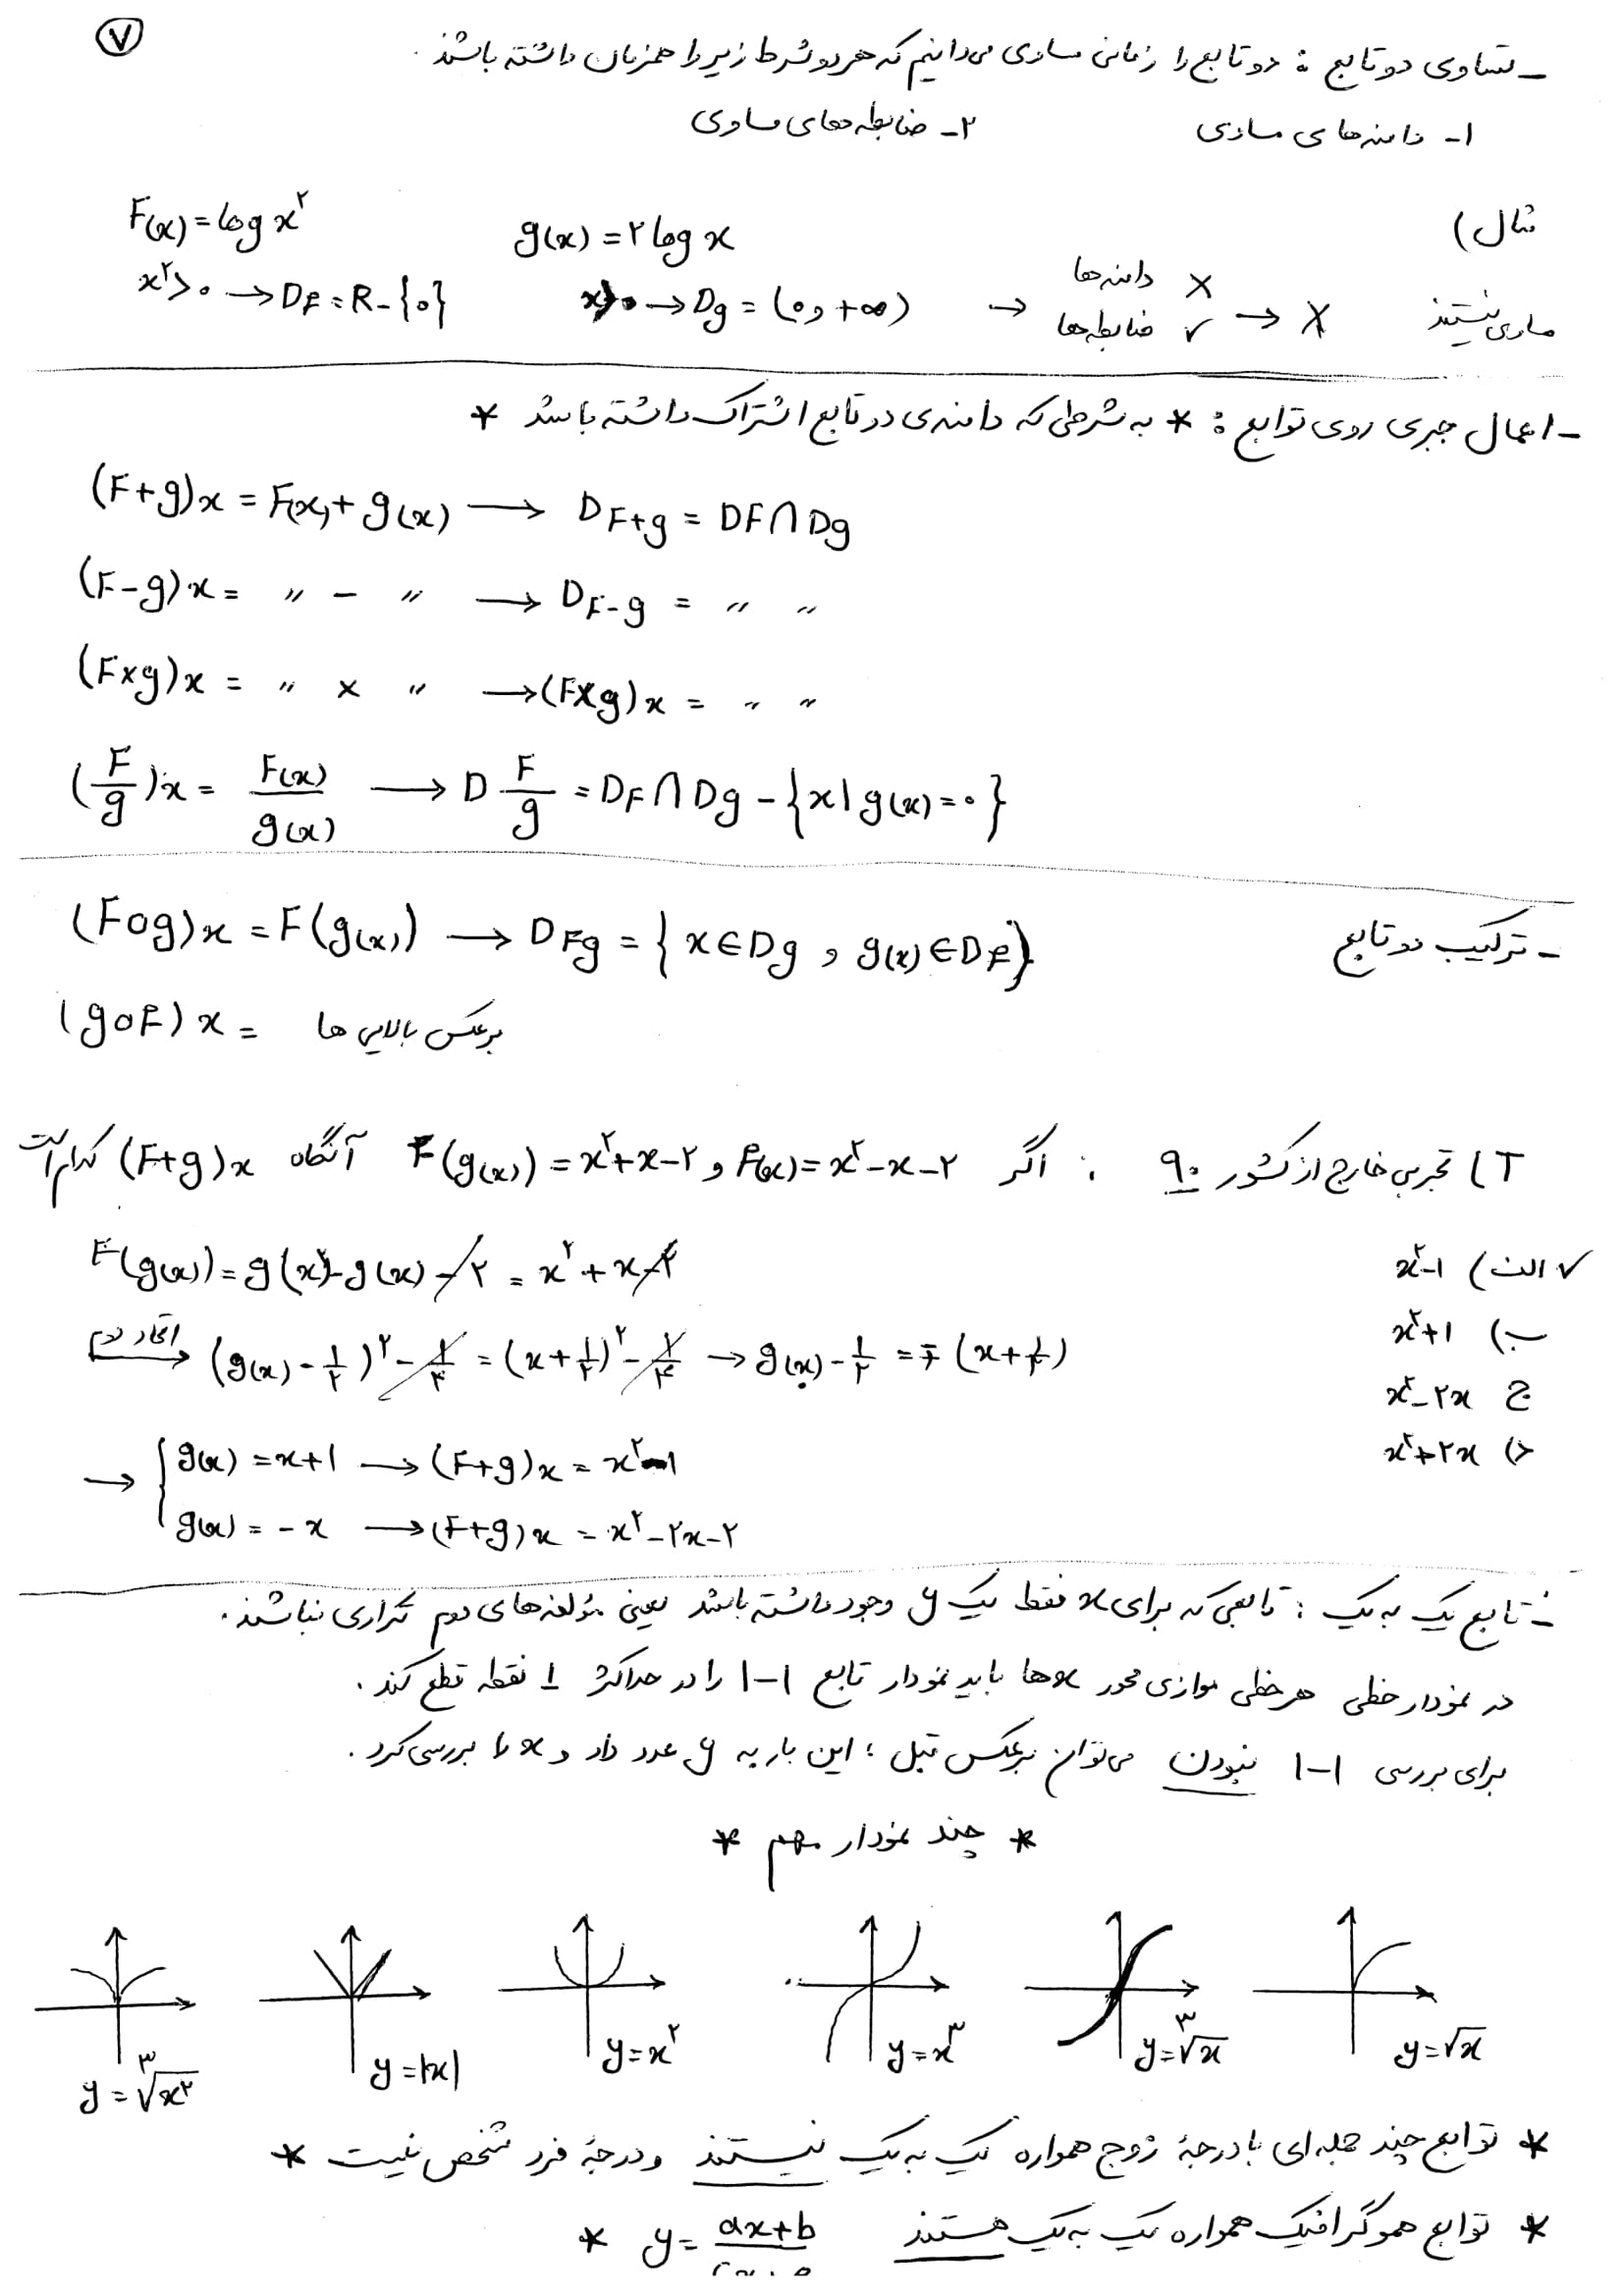 ۷
- تساوی دو تابع : دو تابع را زمانی مساوی می‌دانیم که هر دو شرط زیر را همزمان داشته باشند.
۱- دامنه‌های مساوی ۲- ضابطه‌های مساوی
مثال) F(x) = log x^۲ g(x) = ۲ log x
x^۲ > ۰ → D_F = R - {۰} x > ۰ → Dg = (۰ و +∞) → دامنه‌ها ✗ ضابطه‌ها ✓ → ✗ مساوی نیستند
- اعمال جبری روی توابع : * به شرطی که دامنه‌ی دو تابع اشتراک داشته باشد *
(F+g)x = F(x) + g(x) → D_{F+g} = DF ∩ Dg
(F-g)x = " - " → D_{F-g} = " "
(F×g)x = " × " → (F×g)x = " "
(F/g)x = F(x)/g(x) → D F/g = D_F ∩ Dg - {x | g(x) = ۰}
- ترکیب دو تابع (Fog)x = F(g(x)) → D_{Fg} = {x ∈ Dg و g(x) ∈ D_F}
(goF)x = برعکس بالایی ها
T) تجربی خارج از کشور ۹۰ : اگر F(x) = x^۲ - x - ۲ و F(g(x)) = x^۲ + x - ۲ آنگاه (F+g)x کدام است
✓ الف) x^۲ - ۱
ب) x^۲ + ۱
ج x^۲ - ۲x
د) x^۲ + ۲x
F(g(x)) = g(x)^۲ - g(x) - ۲ = x^۲ + x - ۲
اتحاد دوم → (g(x) - ۱/۲)^۲ - ۱/۴ = (x + ۱/۲)^۲ - ۱/۴ → g(x) - ۱/۲ = ∓ (x + ۱/۲)
→ { g(x) = x + ۱ → (F+g)x = x^۲ - ۱
g(x) = - x → (F+g)x = x^۲ - ۲x - ۲
- تابع یک به یک : تابعی که برای x فقط یک y وجود داشته باشد یعنی مؤلفه‌های دوم تکراری نباشند.
در نمودار خطی هر خطی موازی محور xها باید نمودار تابع ۱-۱ را در حداکثر ۱ نقطه قطع کند.
برای بررسی ۱-۱ نبودن می‌توان برعکس قبل ؛ این بار به y عدد داد و x را بررسی کرد.
* چند نمودار مهم *
y = ∛x^۲ y = |x| y = x^۲ y = x^۳ y = ∛x y = √x
* توابع چند جمله‌ای با درجهٔ زوج همواره یک به یک نیستند و درجهٔ فرد مشخص نیست *
* توابع هموگرافیک همواره یک به یک هستند y = ax+b *